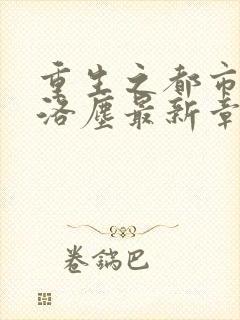 重生之都市
洛尘最新章
卷鍋巴